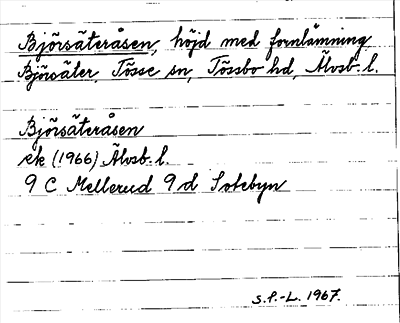 Björsäteråsen, höjd med fornlämning
Björsäter, Tösse sn, Tössbo hd, Älvsb. l.
Björsäteråsen
ek (1966) Älvsb. l.
9 C Mellerud 9 d Sotebyn
S.F.-L. 1967.